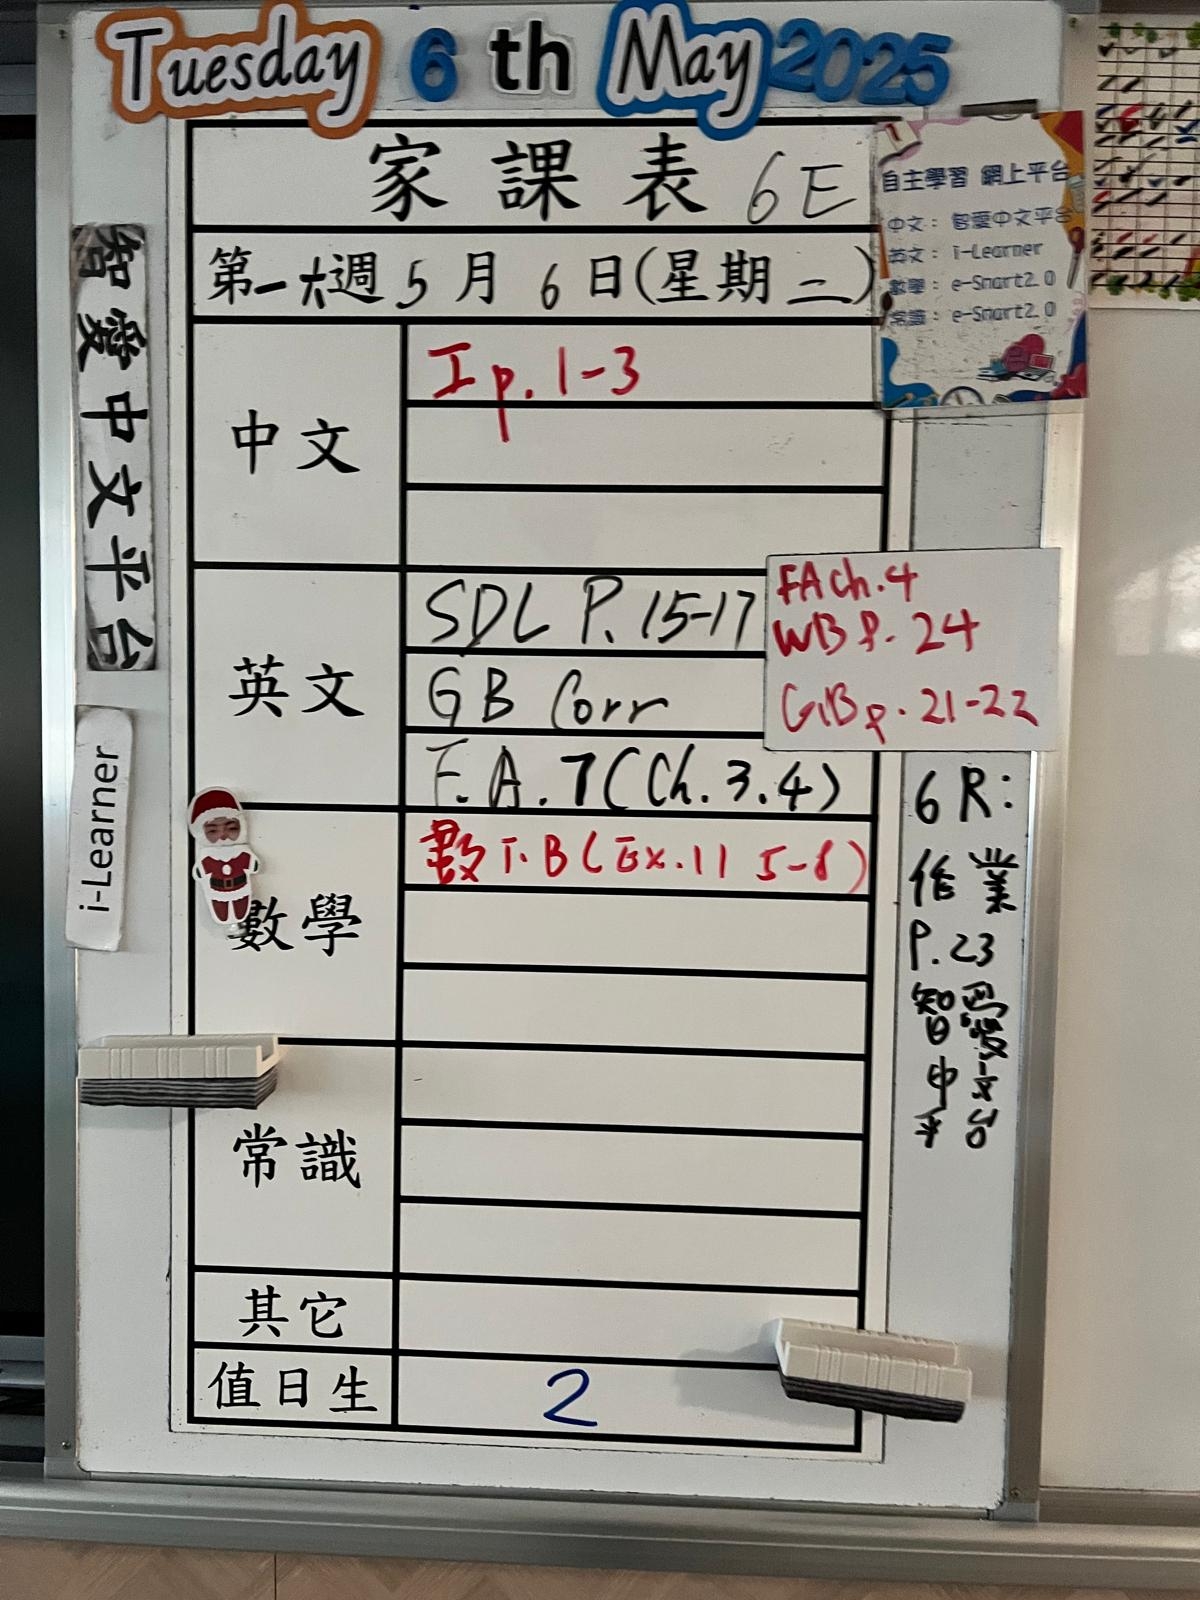 Tuesday 6th May 2025
家課表 6E
第一六週 5月6日(星期二)
自主學習 網上平台
中文：智愛中文平台
英文：i-Learner
數學：e-Smart2.0
常識：e-Smart2.0
智愛中文平台
i-Learner
中文
工 p. 1-3
英文
SDL P. 15-17
GB Corr
F.A.7(Ch.3.4)
FA ch.4
WB p. 24
GB p. 21-22
數學
數T.B(Ex.11 5-8)
6R:
作業
P.23
智愛
中文
平台
常識
其它
值日生
2